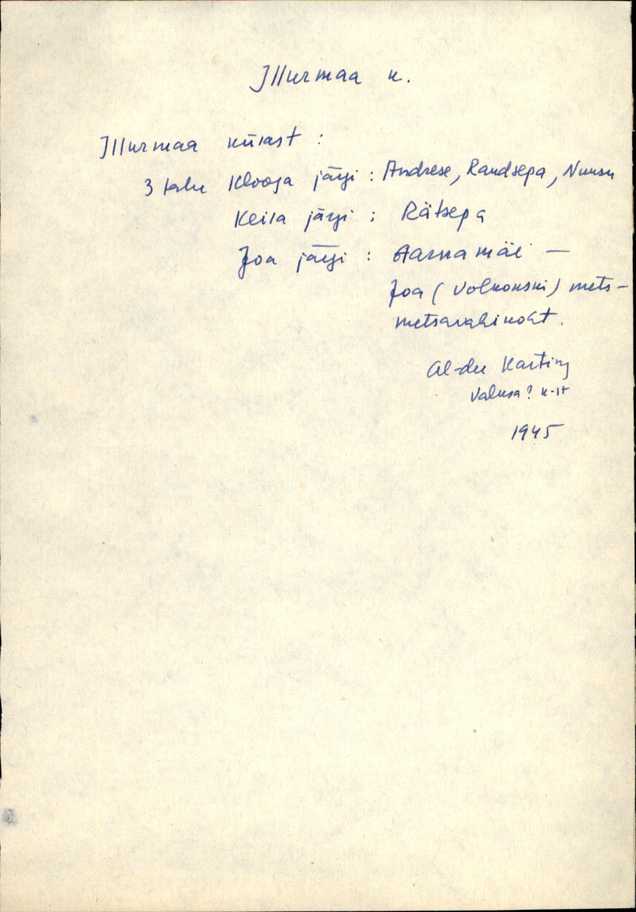 Illurmaa k.
Illurmaa külast :
3 talu Klooga järgi : Andrese, Raudsepa, Nuusu
Keila järgi : Rätsepa
Joa järgi : Aarnamäe —
Joa (Volkonski) mets-
metsavahikoht.
Al-der Karting
Valksa? k-lt
1945